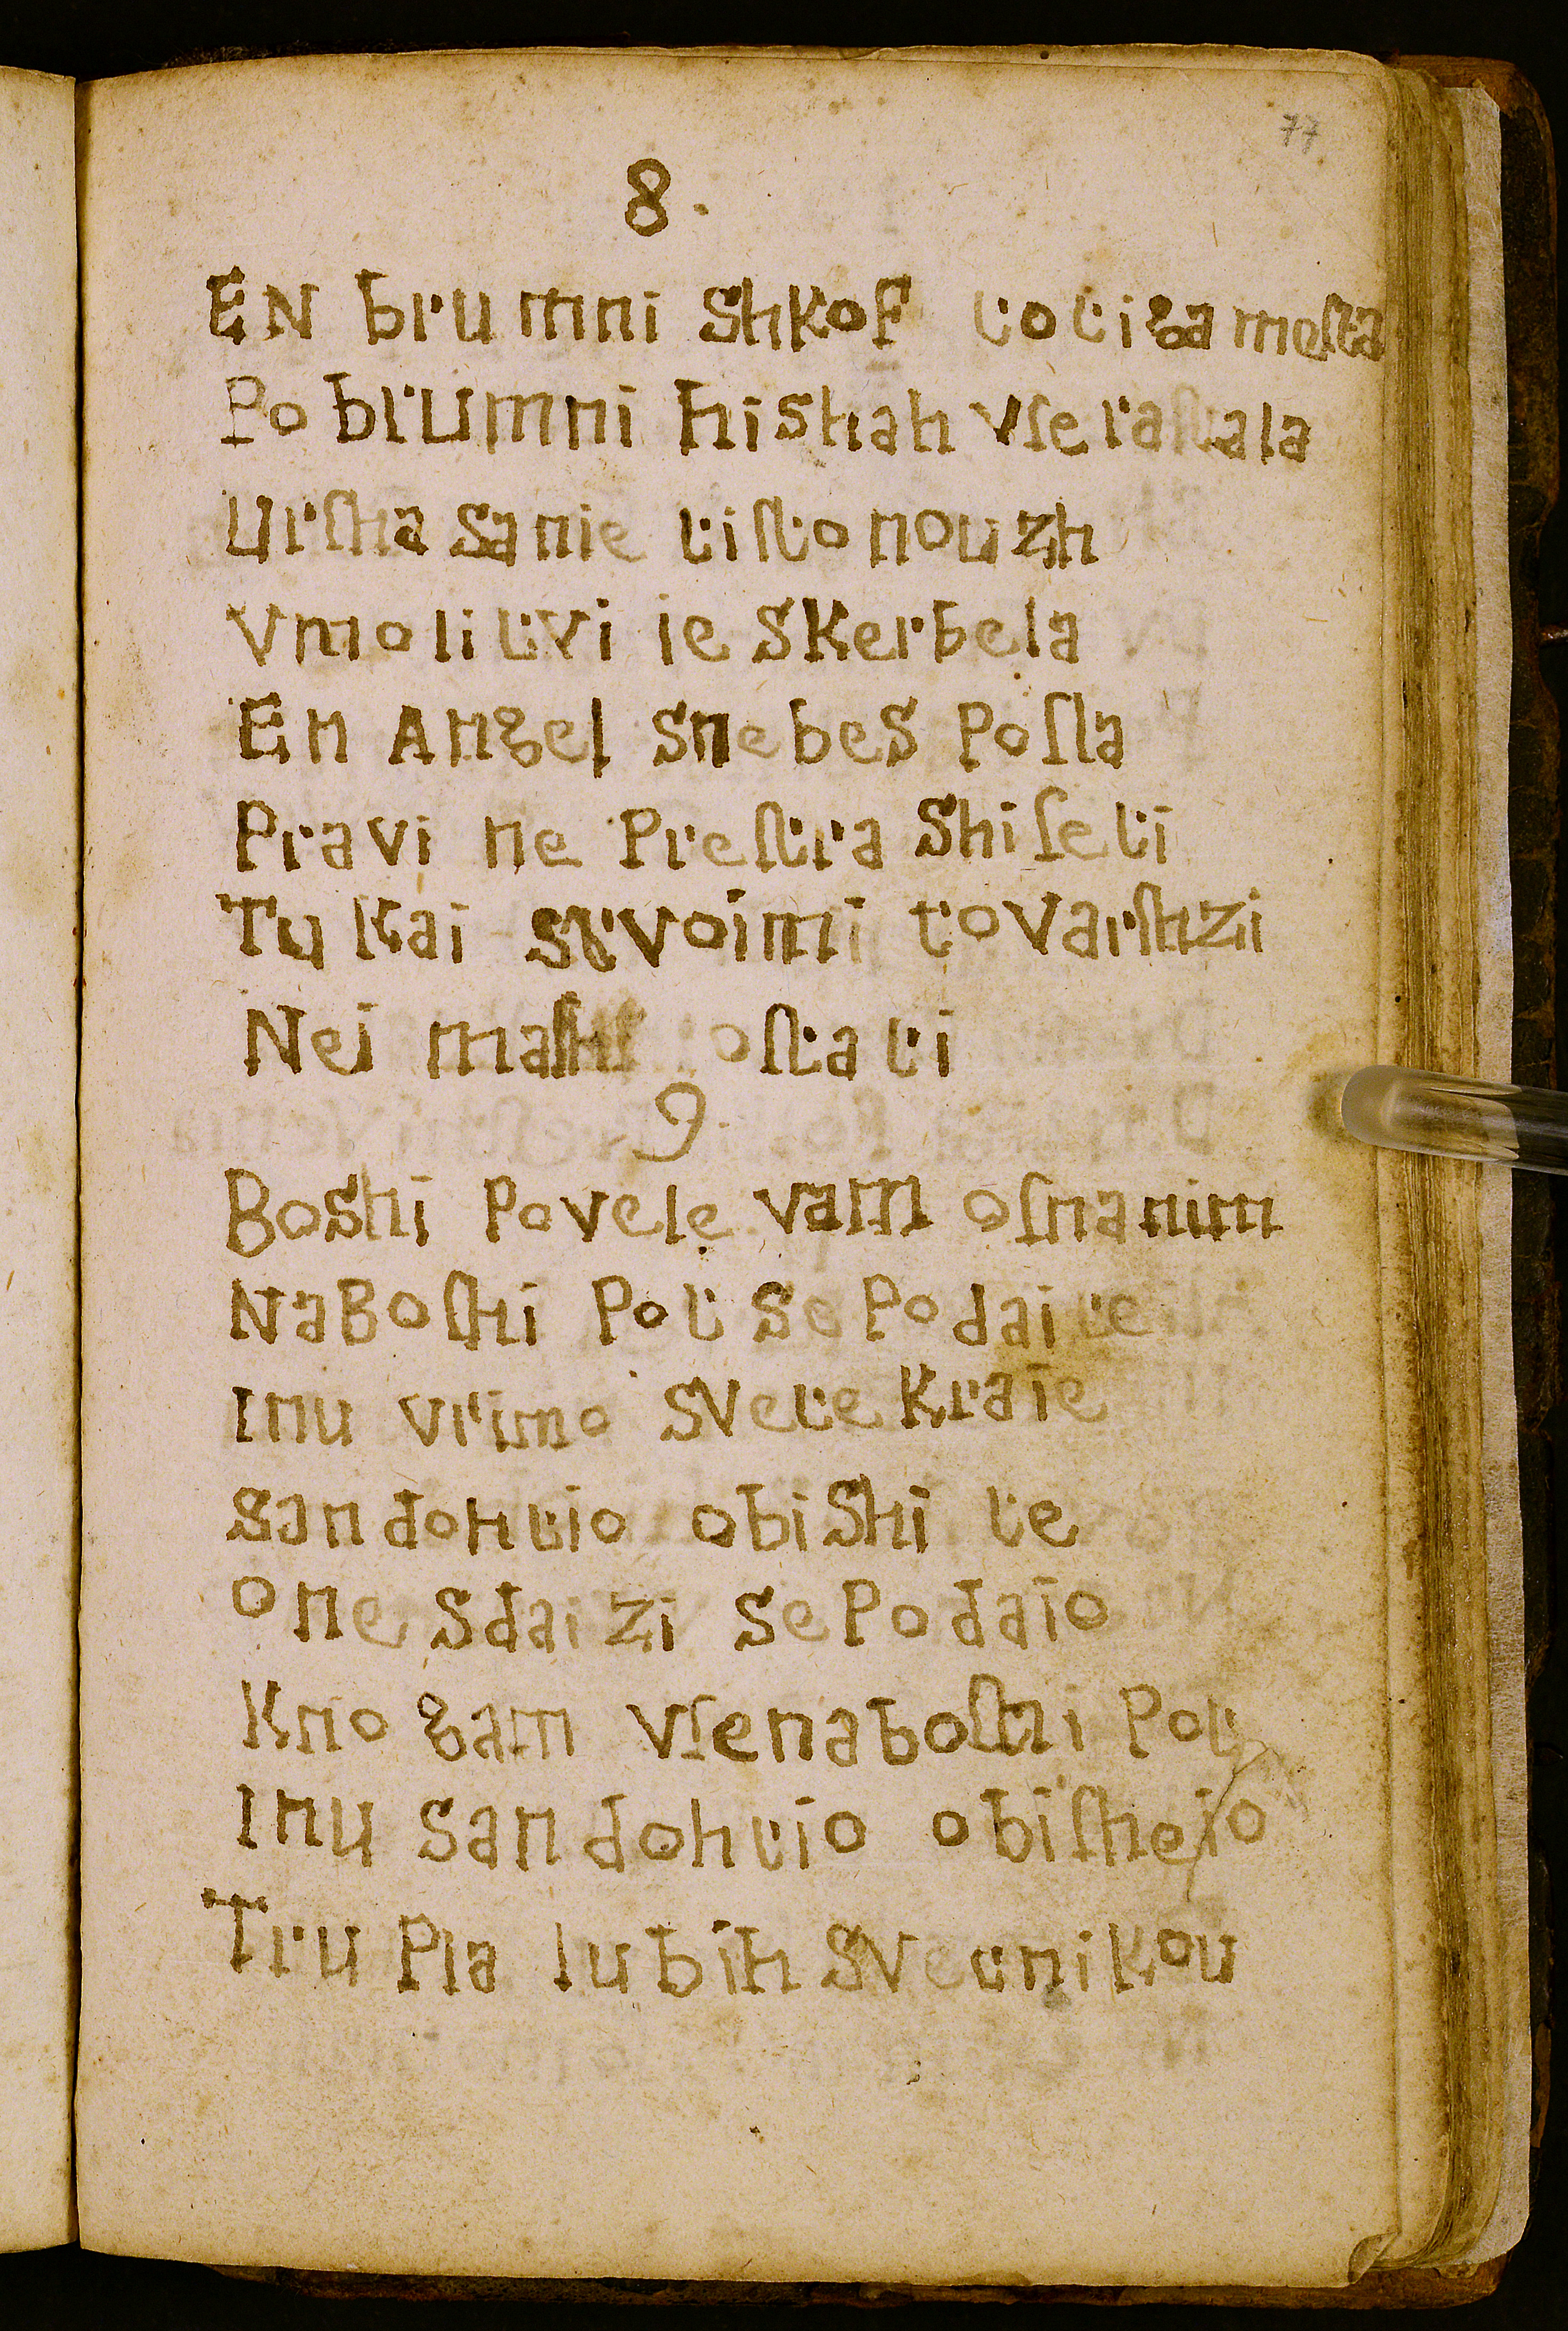 77
8.
EN brumni Shkof totiga meſta
Po brumni hishah vſe raſtala
Urſha sanie tiſto nouzh
Vmolitvi ie SKerbela
En Angel snebes Poſla
Pravi ne Preſtra Shiſeti
Tu Kai stvoimi tovarſhzi
Nei maſh oſtati
9.
Boshi Povele vam oſnanim
NaBoſhi Pot se Podai te
inu vrimo svete Kraie
San dohtio obiShi te
one sdai zi se Podaio
Kno gam vſe naboſhi Pot
inu san dohtio obiſheio
Tru Pla lubih Svetnikou